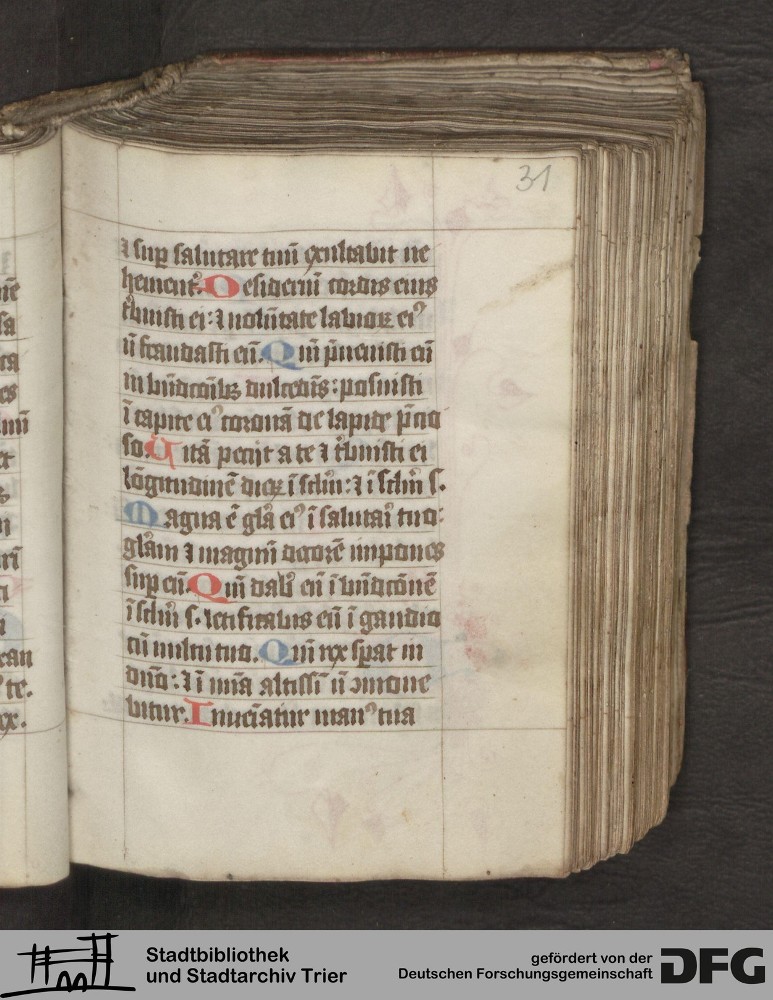 31
⁊ sup salutare tuū exultabit ve
hement̉. Desideriū cordis eius
t̉buisti ei: ⁊ volūtate labioꝝ eiꝰ
nō fraudasti eū. Qm̄ p̄uenisti eū
in bn̄dcōibꝫ dulcedīs: posuisti
ī capite eiꝰ coronā de lapide p̄cio
so. Uitā petijt a te ⁊ t̉buisti ei
lōgitudinē dieꝝ ī sclm̄: ⁊ ī sclm̄ s.
Magna ē gl̄a eiꝰ ī salutaī tuo:
gl̄am ⁊ magnū decorē impones
sup eū. Qm̄ dab̉ eū ī bn̄dcōnē
ī sclm̄ s. letificabis eū ī gaudio
cū vultu tuo. Qm̄ rex sperat in
dn̄o: ⁊ ī mīa altissī nō ꝯmoue
bitur. Inueīatur manꝰ tua
Stadtbibliothek
und Stadtarchiv Trier
gefördert von der
Deutschen Forschungsgemeinschaft
DFG